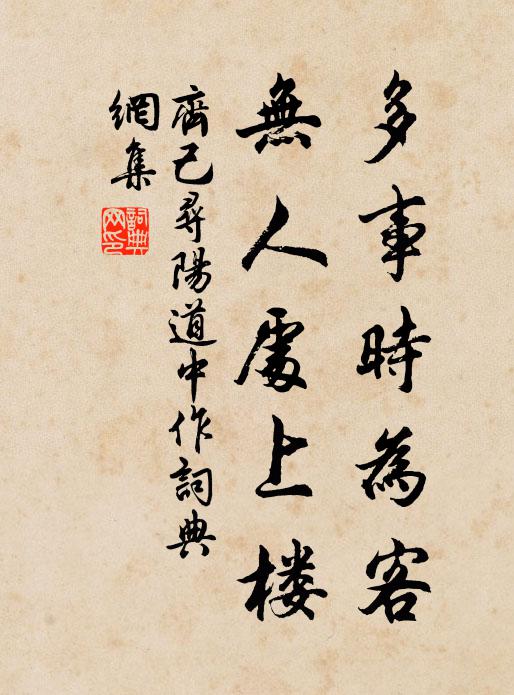 多事時為客
無人處上楼
齊己尋陽道中作詞典
網集
詞典
网印